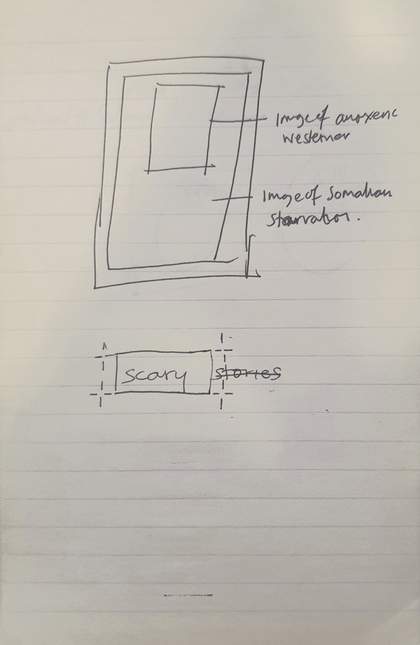 Image of anorexic
westerner
Image of Somalian
starvation.
scary stories